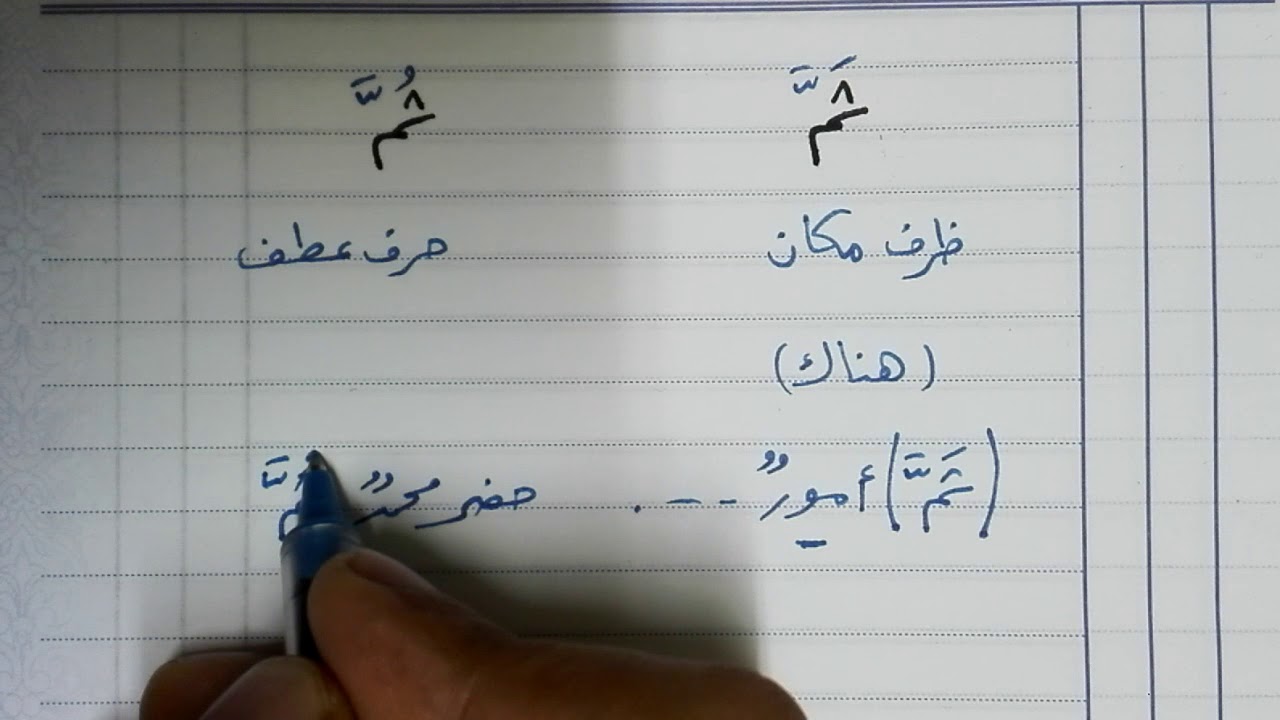 ثَمَّ ثُمَّ
ظرف مكان حرف عطف
(هناك)
(ثَمَّ) أمورٌ - - - . حضر محمدٌ ثُمَّ